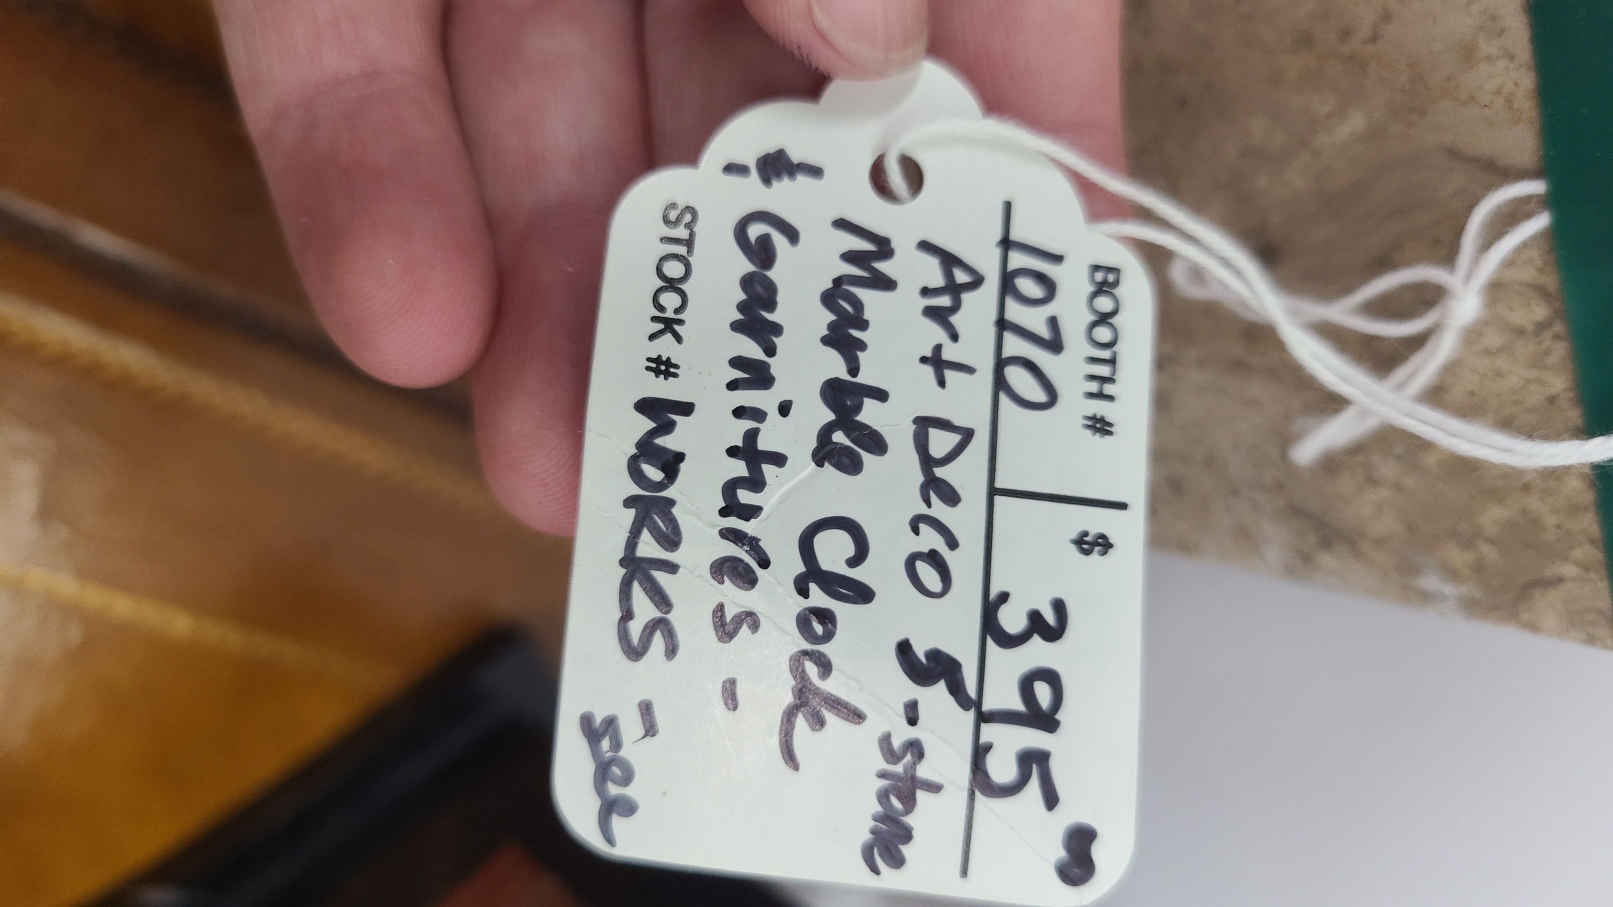 BOOTH # $
1070 395 00
Art Deco 5-stone
Marble Clock
& Garnitures -
STOCK # WORKS - see